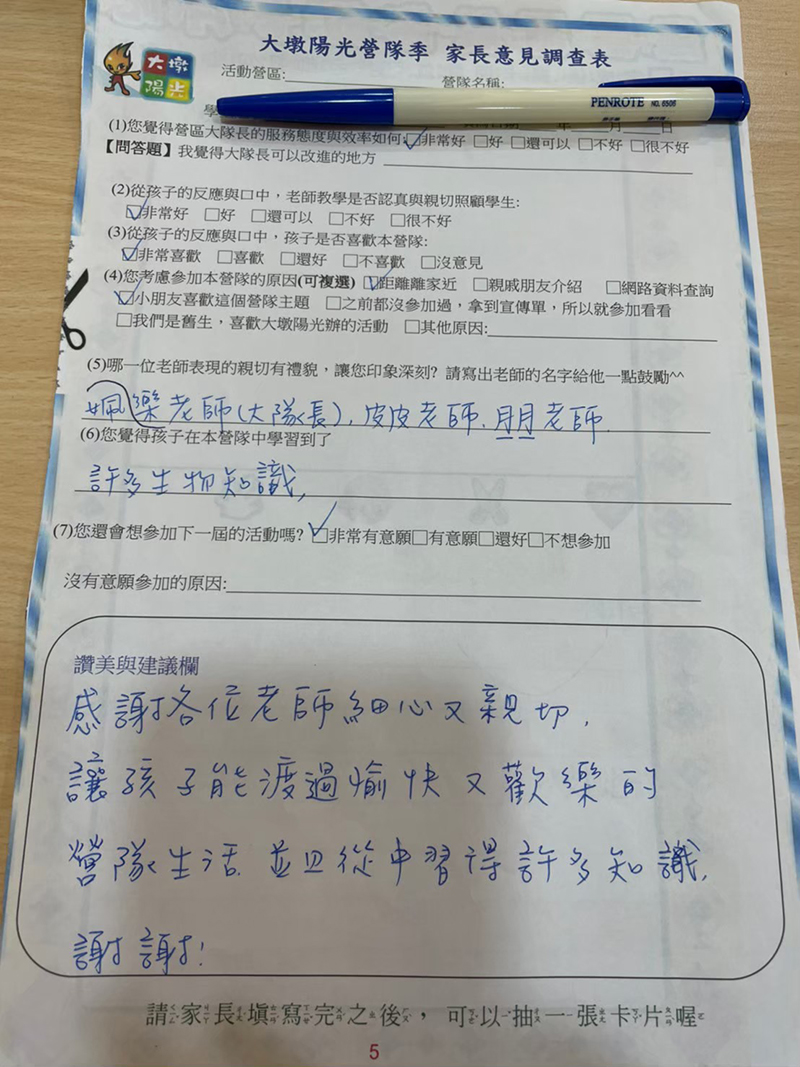 大墩陽光營隊季 家長意見調查表
大墩
陽光
活動營區:
營隊名稱:
學
PENROTE NO. 6506
年 月 日
(1)您覺得營區大隊長的服務態度與效率如何:☑非常好 □好 □還可以 □不好 □很不好
【問答題】我覺得大隊長可以改進的地方
(2)從孩子的反應與口中，老師教學是否認真與親切照顧學生:
☑非常好 □好 □還可以 □不好 □很不好
(3)從孩子的反應與口中，孩子是否喜歡本營隊:
☑非常喜歡 □喜歡 □還好 □不喜歡 □沒意見
(4)您考慮參加本營隊的原因(可複選) ☑距離離家近 □親戚朋友介紹 □網路資料查詢
☑小朋友喜歡這個營隊主題 □之前都沒參加過，拿到宣傳單，所以就參加看看
□我們是舊生，喜歡大墩陽光辦的活動 □其他原因:
(5)哪一位老師表現的親切有禮貌，讓您印象深刻? 請寫出老師的名字給他一點鼓勵^^
樂老師(大隊長), 皮皮老師、朋朋老師.
(6)您覺得孩子在本營隊中學習到了
許多生物知識,
(7)您還會想參加下一屆的活動嗎? ☑非常有意願□有意願□還好□不想參加
沒有意願參加的原因:
讚美與建議欄
感謝各位老師細心又親切,
讓孩子能渡過愉快又歡樂的
營隊生活. 並且從中習得許多知識,
謝謝!
請家長填寫完之後，可以抽一張卡片喔
5